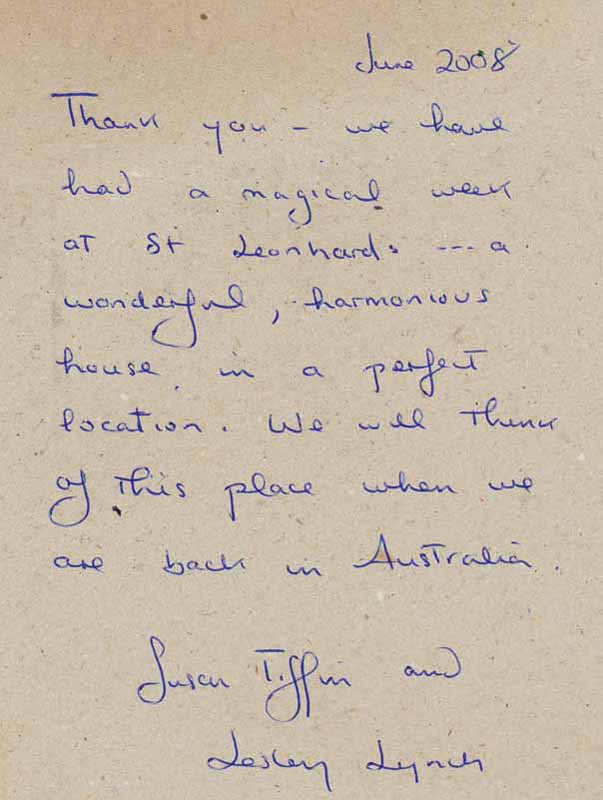 June 2008
Thank you – we have
had a magical week
at St Leonhards --- a
wonderful, harmonious
house in a perfect
location. We will think
of this place when we
are back in Australia.
Susan Tiffin and
Lesley Lynch